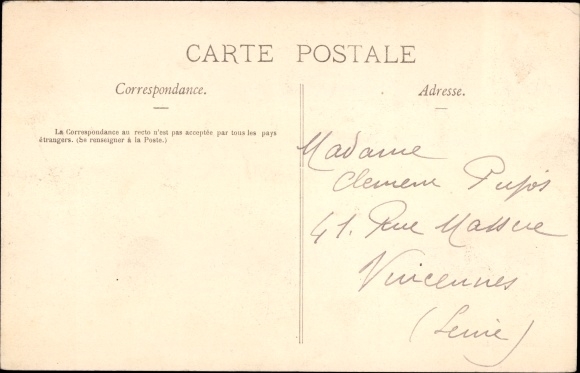 CARTE POSTALE
Correspondance.
La Correspondance au recto n'est pas acceptée par tous les pays
étrangers. (Se renseigner à la Poste.)
Adresse.
Madame
Clement Pujos
41. Rue Massue
Vincennes
(Seine)